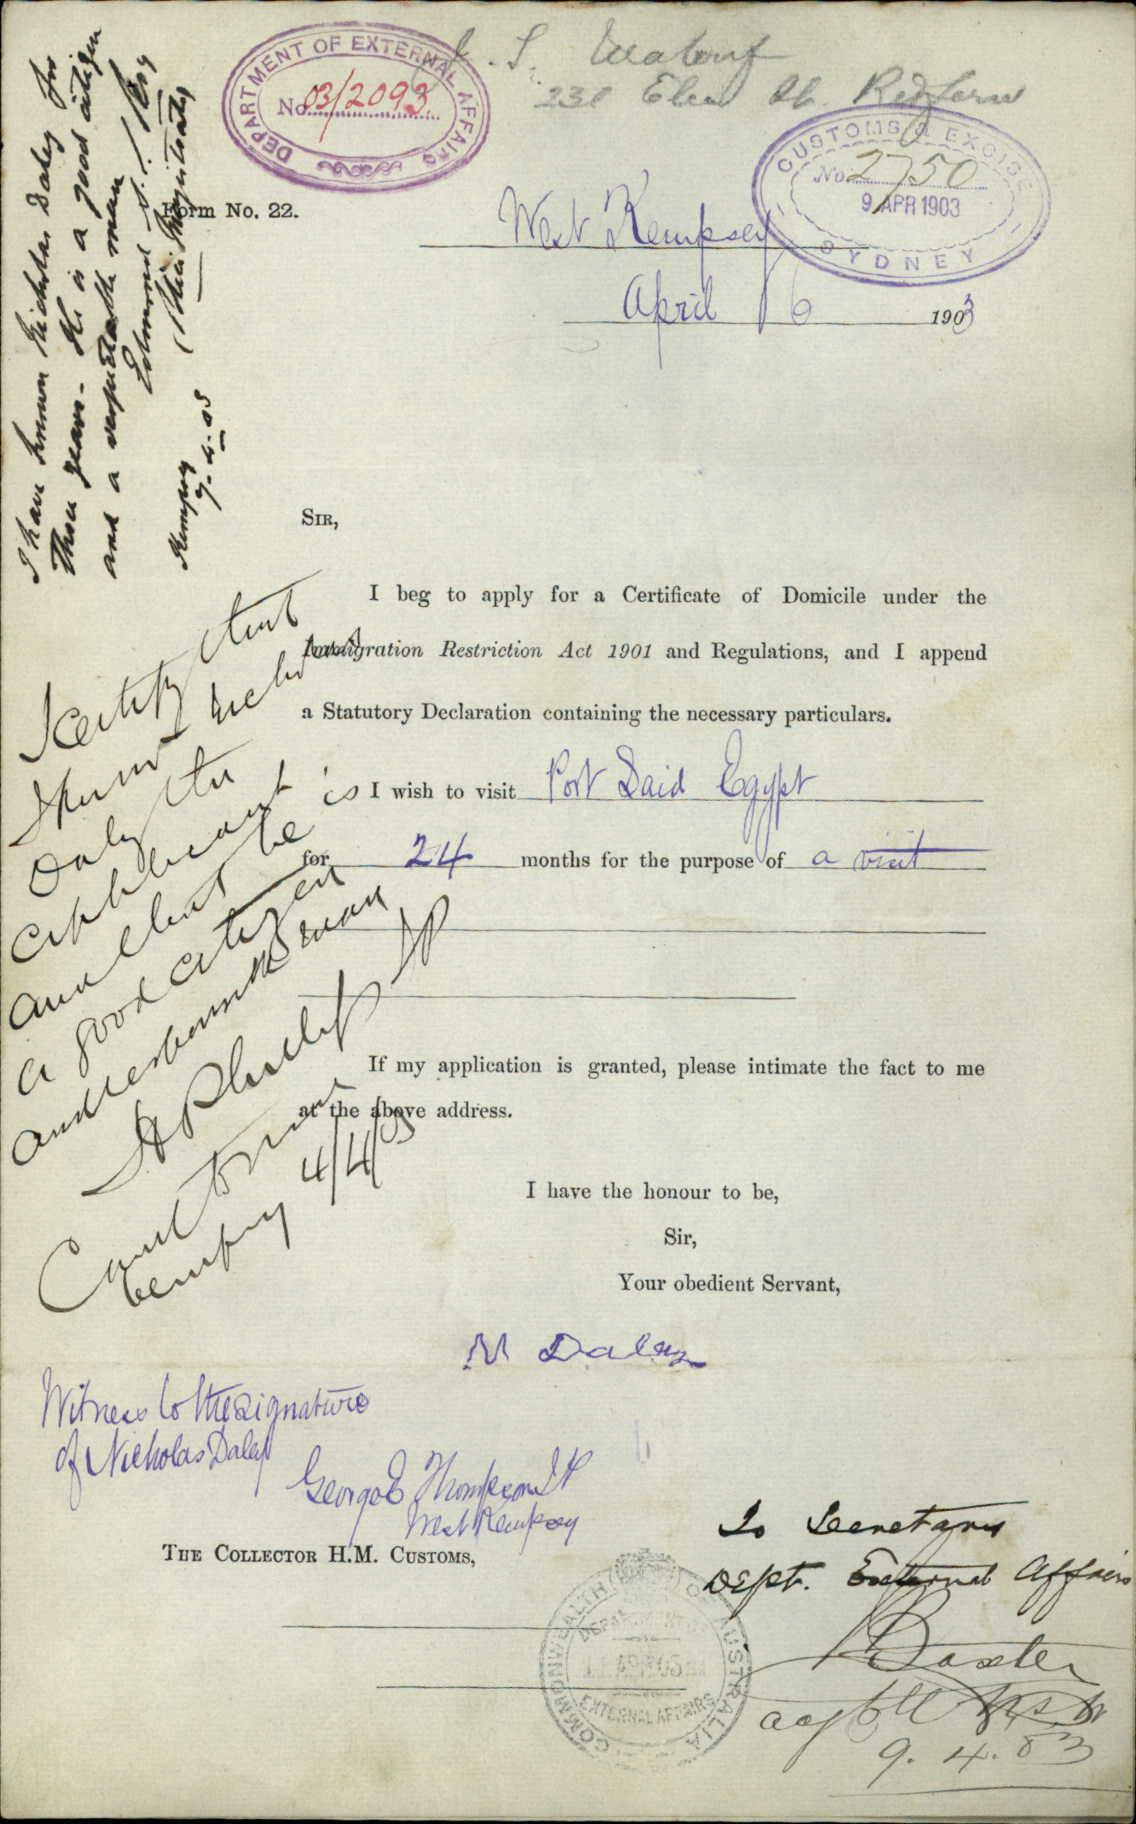 J. S.
231 Eliza St. Redfern
DEPARTMENT OF EXTERNAL AFFAIRS
No 03/2093
CUSTOMS & EXCISE
No 2750
9 APR 1903
SYDNEY
Form No. 22.
West Kempsey
April 6 1903
I have known Nicholas Daley for
three years - He is a good citizen
and a respectable man
Edmond
(Police Magistrate)
Kempsey
7-4-03
SIR,
I beg to apply for a Certificate of Domicile under the
Immigration Restriction Act 1901 and Regulations, and I append
a Statutory Declaration containing the necessary particulars.
I wish to visit Port Said Egypt
for 24 months for the purpose of a visit
I certify that
I know Nicholas
Daley the
applicant
and that he is
a good citizen
and respectable man
Phillips JP
Court House
Kempsey 4/4/03
If my application is granted, please intimate the fact to me
at the above address.
I have the honour to be,
Sir,
Your obedient Servant,
N Daley
Witness to the signature
of Nicholas Daley
George E Thompson J P
West Kempsey
THE COLLECTOR H.M. CUSTOMS,
To Secretary
Dept. External Affairs
Baxter
9. 4. 03
COMMONWEALTH OF AUSTRALIA
EXTERNAL AFFAIRS